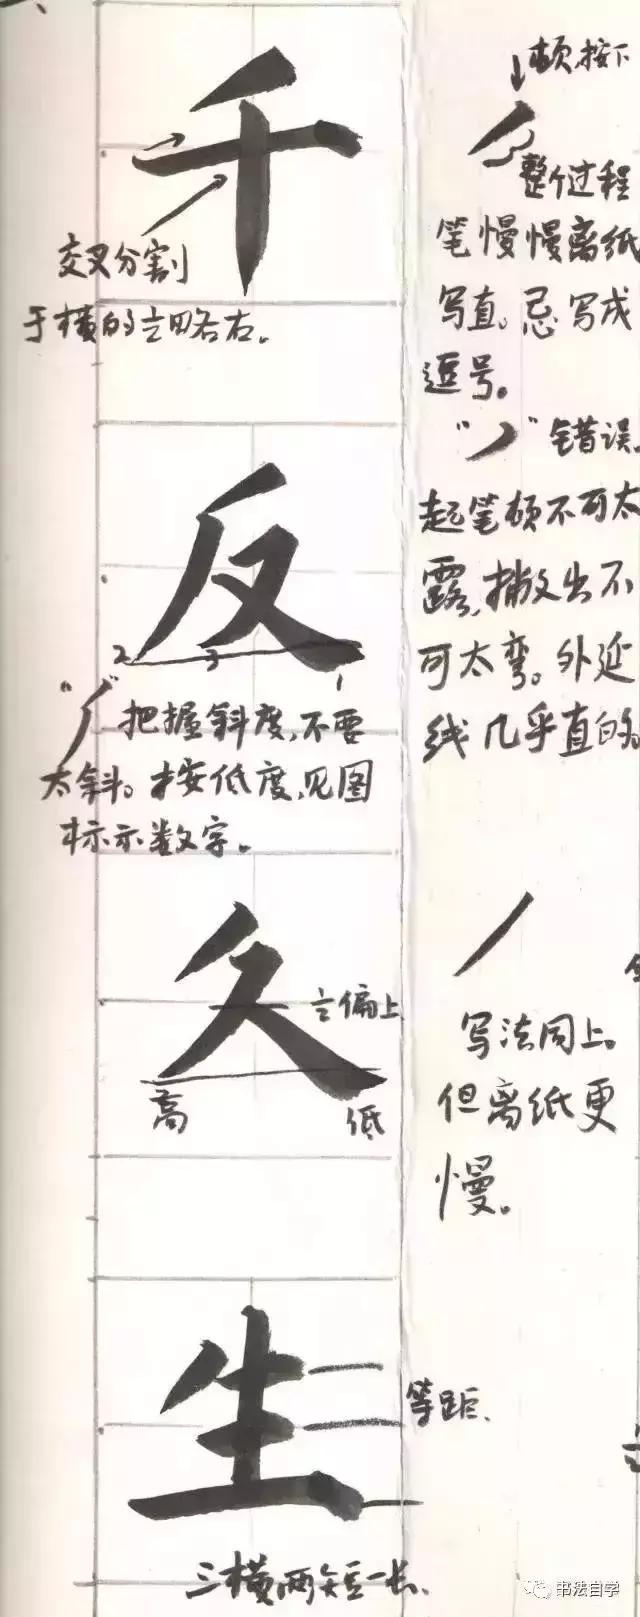 千
交叉分割
于横的1/2略右。
反
2
3
1
把握斜度,不要
太斜。按低度,见图
标示数字。
久
1/2偏上
高
低
生
等距、
三横两短一长、
顿按下
整个过程
笔慢慢离纸
写直。忌写成
逗号。
“丿”错误。
起笔顿不可太
露,撇出不
可太弯。外延
线几乎直的。
写法同上。
但离纸更
慢。
书法自学